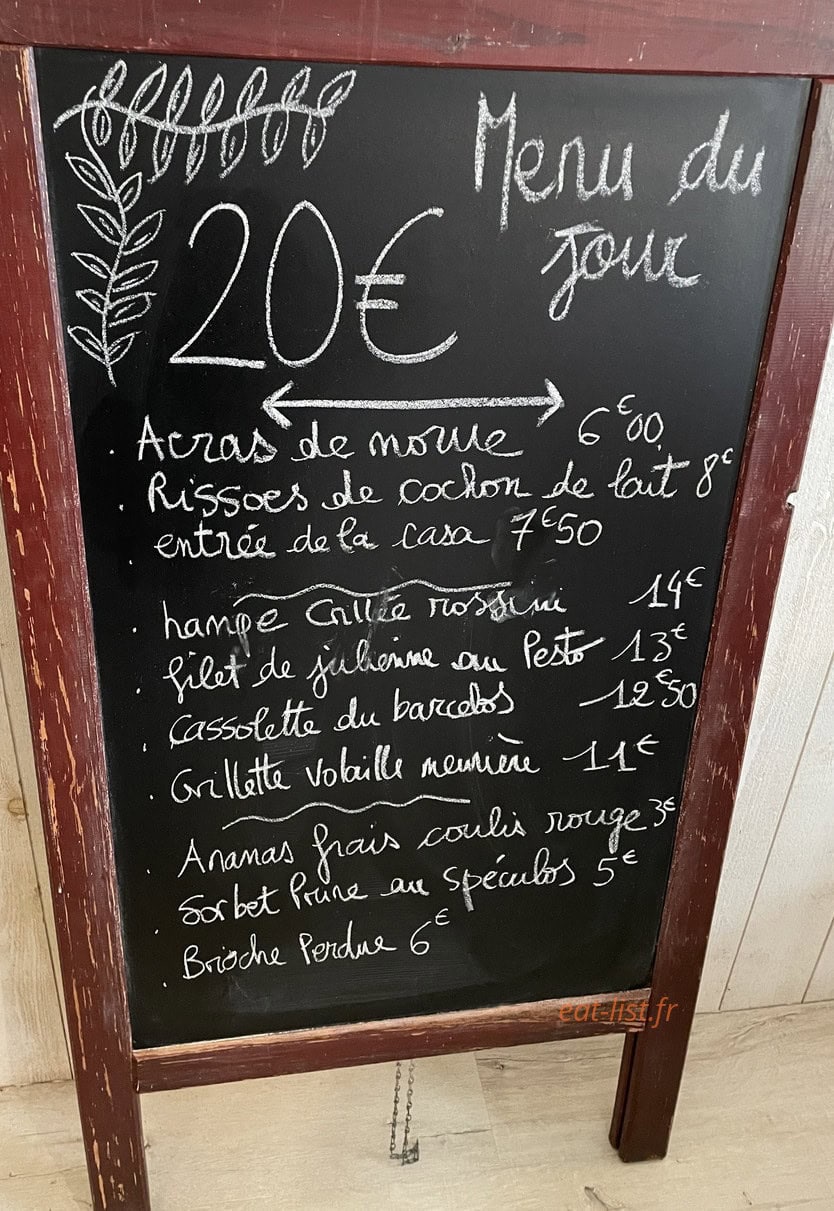 Menu du
jour
20€
Acras de morue 6€00
Rissoes de cochon de lait 8€
entrée de la casa 7€50
hampe Grillée rossini 14€
filet de julienne au Pesto 13€
Cassolette du barcelos 12€50
Grillette volaille meunière 11€
Ananas frais coulis rouge 3€
Sorbet Prune au spéculos 5€
Brioche Perdue 6€
eat-list.fr